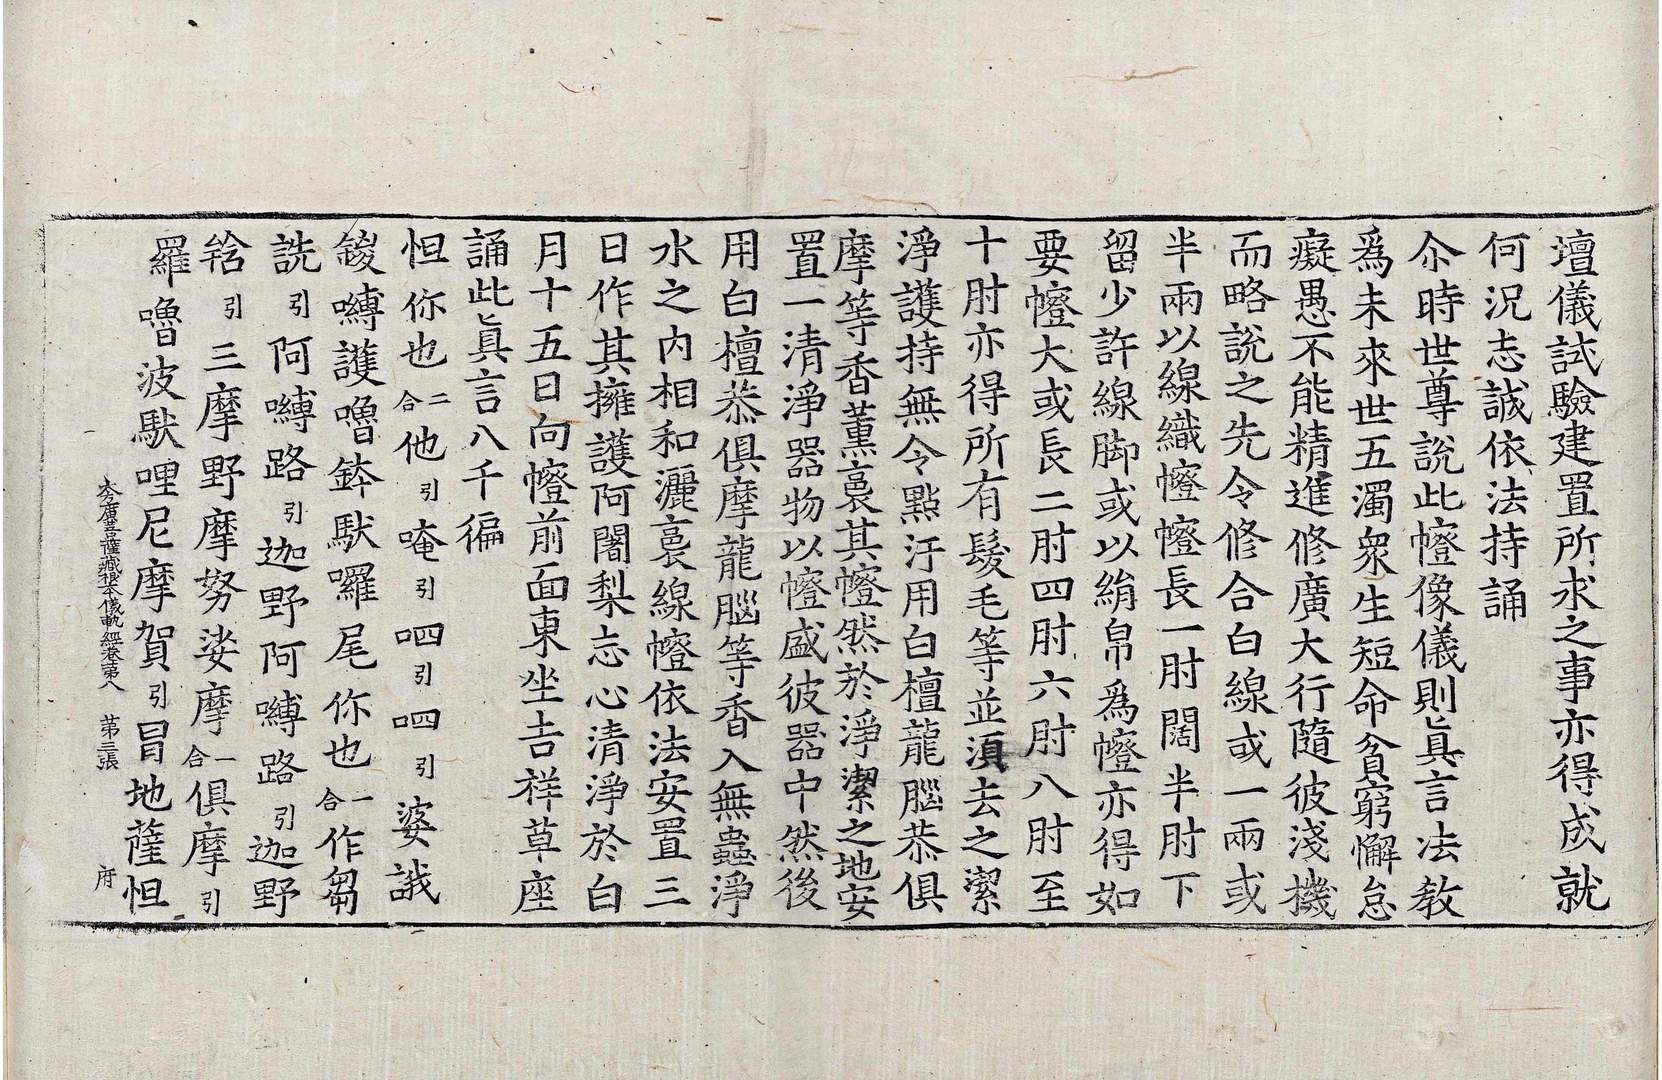 壇儀試驗建置所求之事亦得成就
何況志誠依法持誦
尒時世尊說此㡧像儀則眞言法教
爲未來世五濁衆生短命貧窮懈怠
癡愚不能精進修廣大行隨彼淺機
而略說之先令修合白線或一兩或
半兩以線織㡧㡧長一肘闊半肘下
留少許線脚或以絹帛爲㡧亦得如
要㡧大或長二肘四肘六肘八肘至
十肘亦得所有髮毛等並須去之潔
淨護持無令點汙用白檀龍腦恭俱
摩等香薰裛其㡧然於淨潔之地安
置一清淨器物以㡧盛彼器中然後
用白檀恭俱摩龍腦等香入無蟲淨
水之內相和灑裛線㡧依法安置三
日作其擁護阿闍梨志心清淨於白
月十五日向㡧前面東坐吉祥草座
誦此眞言八千徧
怛你也二合他引唵引呬引呬引婆誐
鑁嚩護嚕鉢馱囉尾你也二合作芻
詵引阿嚩路引迦野阿嚩路引迦野
䭾引三摩野摩努娑摩二合俱摩引
羅嚕波馱哩尼摩賀引冒地薩怛
大方廣菩薩藏根本儀軌經卷第八 第三張 府